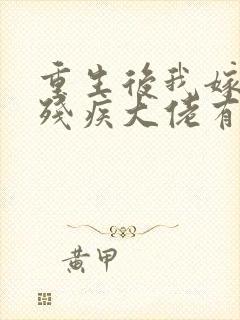 重生後我嫁
殘疾大佬有
黃甲